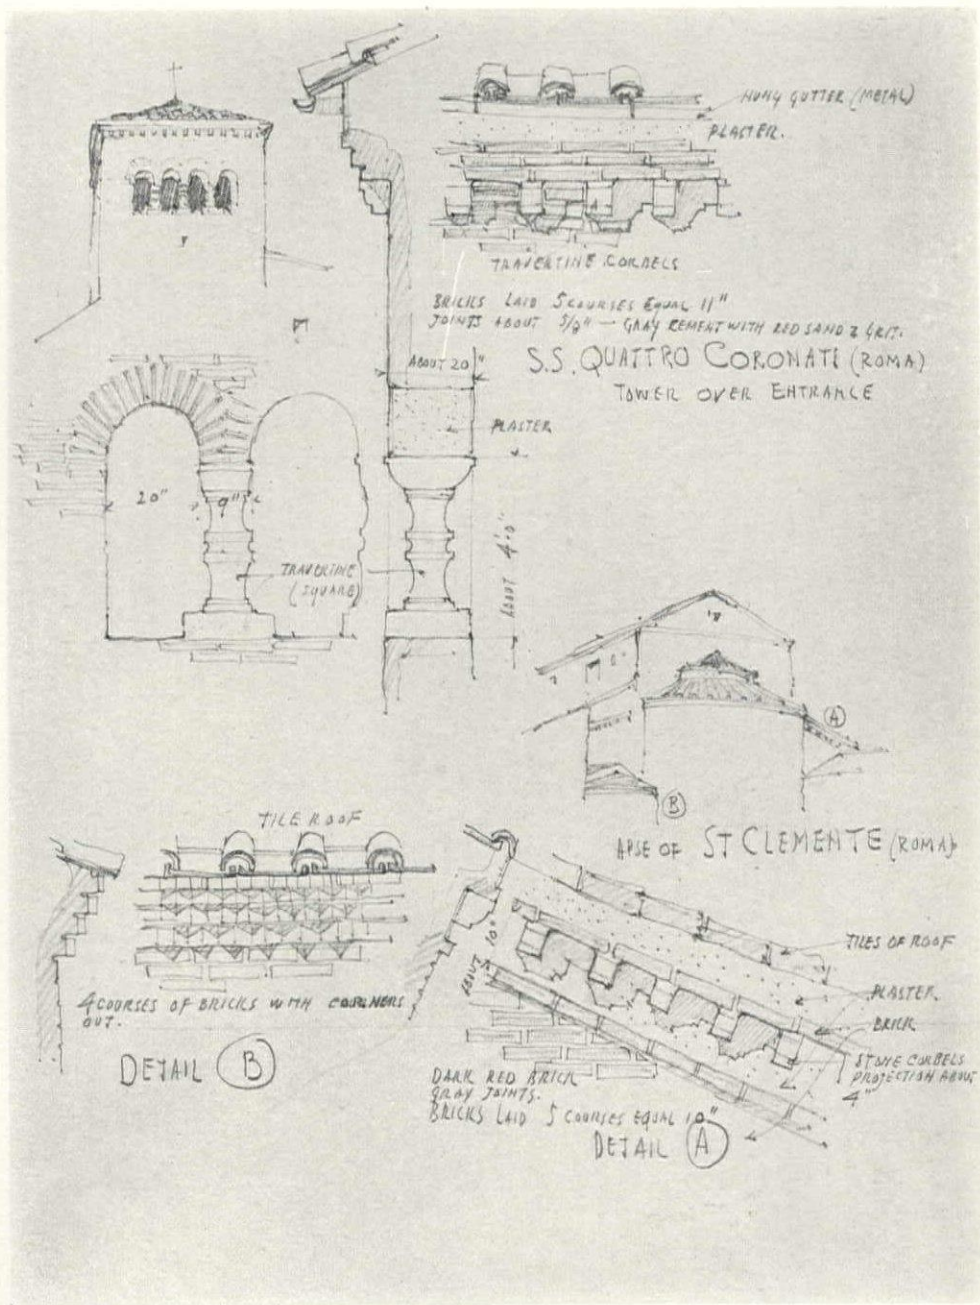 HUNG GUTTER (METAL)
PLASTER.
TRAVERTINE CORBELS
BRICKS LAID 5 COURSES EQUAL 11"
JOINTS ABOUT 5/8" — GRAY CEMENT WITH RED SAND & GRIT.
S.S. QUATTRO CORONATI (ROMA)
TOWER OVER ENTRANCE
ABOUT 20"
PLASTER
20"
9"
TRAVERTINE
(SQUARE)
ABOUT 4'0"
A
B
APSE OF ST CLEMENTE (ROMA)
TILE ROOF
4 COURSES OF BRICKS WITH CORNERS
OUT.
DETAIL B
ABOUT 10"
TILES OF ROOF
PLASTER.
BRICK
STONE CORBELS
PROJECTION ABOUT
4"
DARK RED BRICK
GRAY JOINTS.
BRICKS LAID 5 COURSES EQUAL 10"
DETAIL A